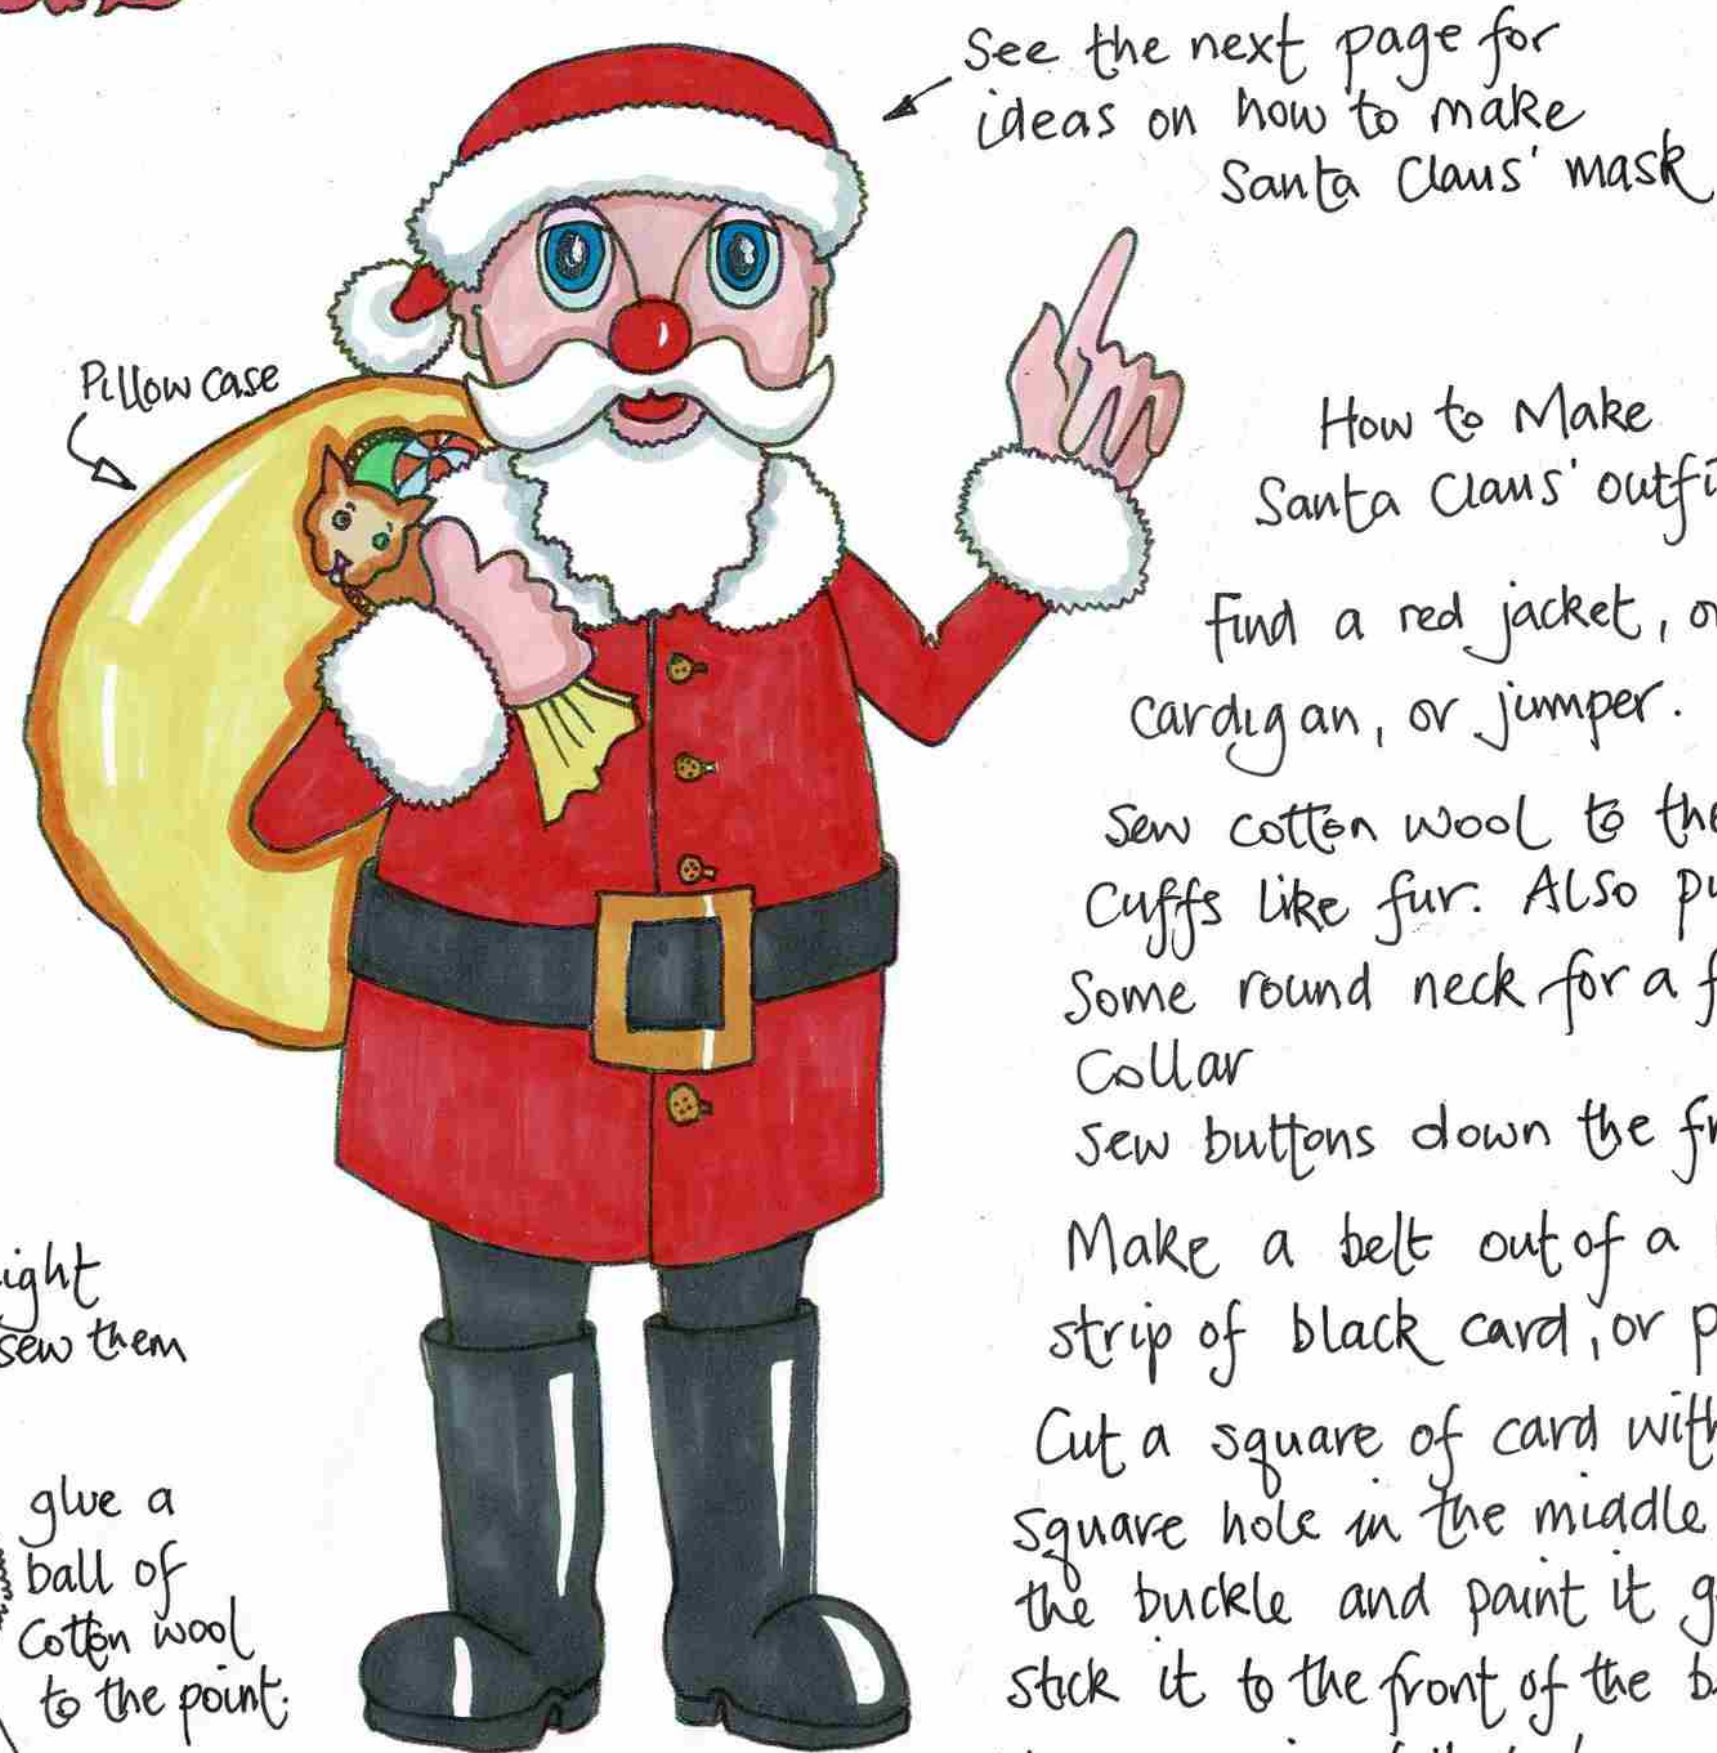 See the next page for
ideas on how to make
Santa Claus' mask
Pillow case
How to Make
Santa Claus' outfi
Find a red jacket, or
cardigan, or jumper.
Sew cotton wool to the
Cuffs like fur. Also pu
Some round neck for a f
Collar
Sew buttons down the fr
Make a belt out of a
strip of black card, or p
Cut a square of card with
square hole in the middle
the buckle and paint it g
stick it to the front of the b
ight
sew them
glue a
ball of
Cotton wool
to the point.